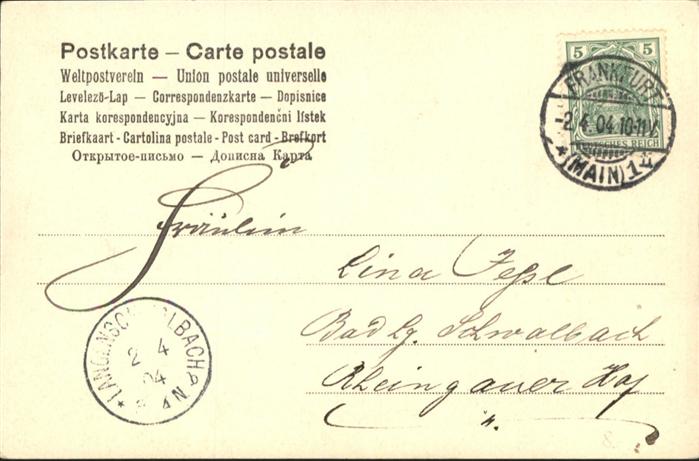 Postkarte – Carte postale
Weltpostverein — Union postale universelle
Levelező-Lap — Correspondenzkarte — Dopisnice
Karta korespondencyjna — Korespondenční lístek
Briefkaart - Cartolina postale - Post card - Brefkort
Открытое-письмо — Дописна Карта
5 5
DEUTSCHES REICH
FRANKFURT
-2.4.04.10-11V.
* (MAIN) 1 *
Fräulein
Lina
Bad Lg. Schwalbach
Rheingauer Hof
LANGENSCHWALBACH
2 4
04
N